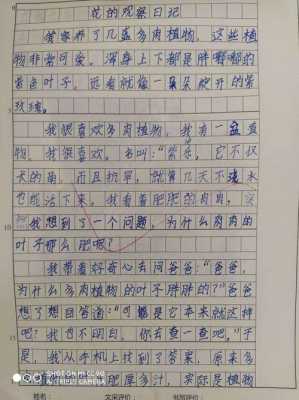 花的观察日记
我家养了几盆多肉植物，这些植
物非常可爱。浑身上下都是胖嘟嘟的
紫色叶子。远看就像一朵朵绽开的紫
玫瑰。
5
我很喜欢多肉植物，我有一盆植
物，我很喜欢。名叫："紫乐，它不仅
大的萌，而且抗旱，就算几天不浇水
也能活下来。我看着肥肥的肉肉，突
10
我想到了一个问题，为什么肉肉的
叶子那么肥呢？
我带着好奇心去问爸爸："爸爸，
为什么多肉植物的叶子胖胖的？"爸爸
想了想回答道："可能是它本来就这样
15
吧？我也不明白，你去查一查吧。"于
是，我从手机上找到了答案，原来多
肥厚多汁，实际是植物
REDMI
AI QUAD CAMERA
姓名：